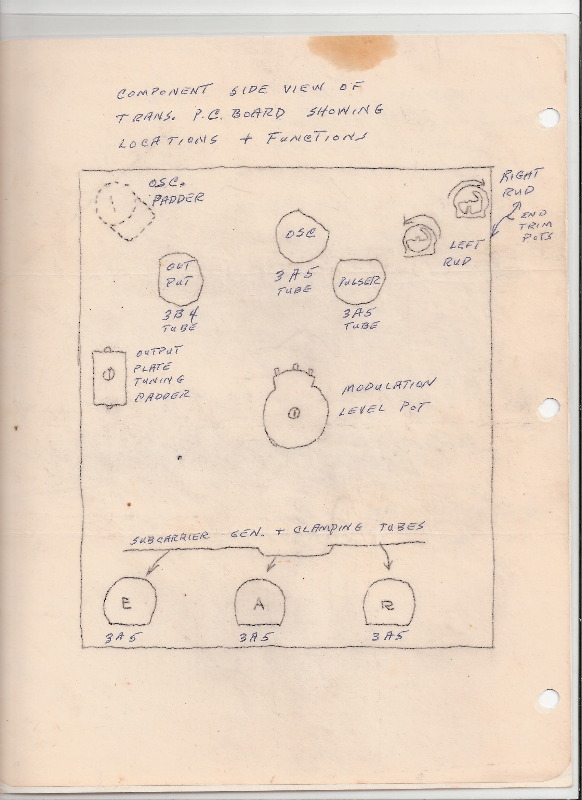 COMPONENT SIDE VIEW OF
TRANS. P.C. BOARD SHOWING
LOCATIONS + FUNCTIONS
OSC.
PADDER
RIGHT
RUD
END
TRIM
POTS
LEFT
RUD
OSC
3A5
TUBE
OUT
PUT
3B4
TUBE
PULSER
3A5
TUBE
OUTPUT
PLATE
TUNING
PADDER
MODULATION
LEVEL POT
SUBCARRIER GEN. + CLAMPING TUBES
E
A
R
3A5
3A5
3A5